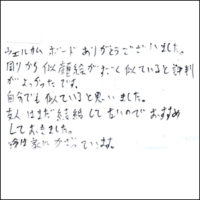 ウェルカムボードありがとうございました。
周りから似顔絵がすごく似ていると評判
がよかったです。
自分でも似ていると思いました。
友人はまだ結婚してないのでおすすめ
しておきました。
今は家にかざっています。